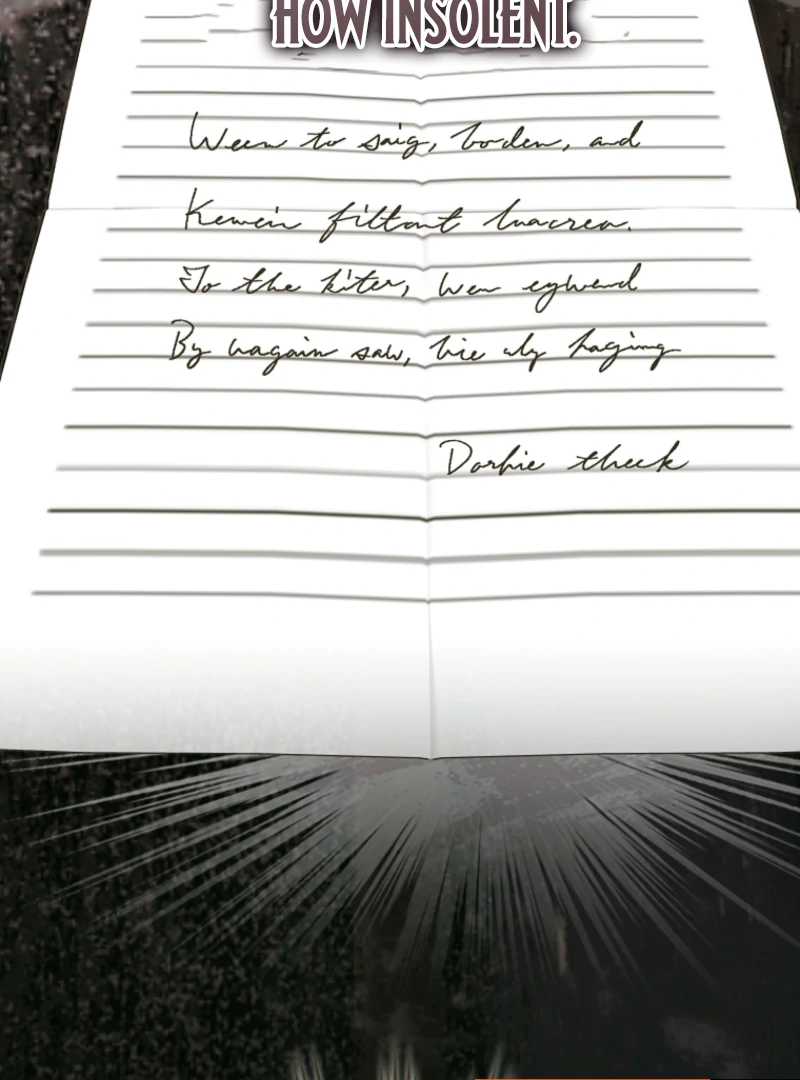 HOW INSOLENT.
Ween to saig, boden, and
Kewein filtont luacrea.
To the kiter, wen eglwend
By wagain saw, hie uly haging
Dorhie theek